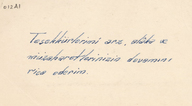 012A1
Teşekkürlerimi arz, alâka ve
müzaheretlerinizin devamını
rica ederim.